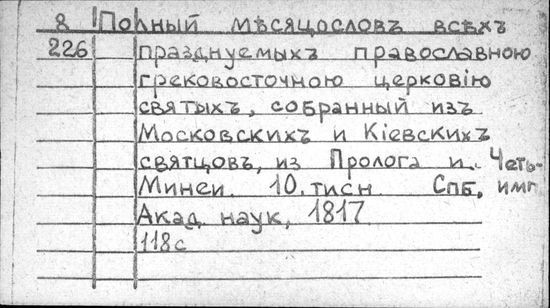 8 Полный мѣсяцословъ всѣхъ
226 празднуемыхъ православною
грековосточною церковію
святыхъ, собранный изъ
Московскихъ и Кіевскихъ
святцовъ, из Пролога и Четь-
Минеи. 10. тисн Спб, имп
Акад наук, 1817
118с